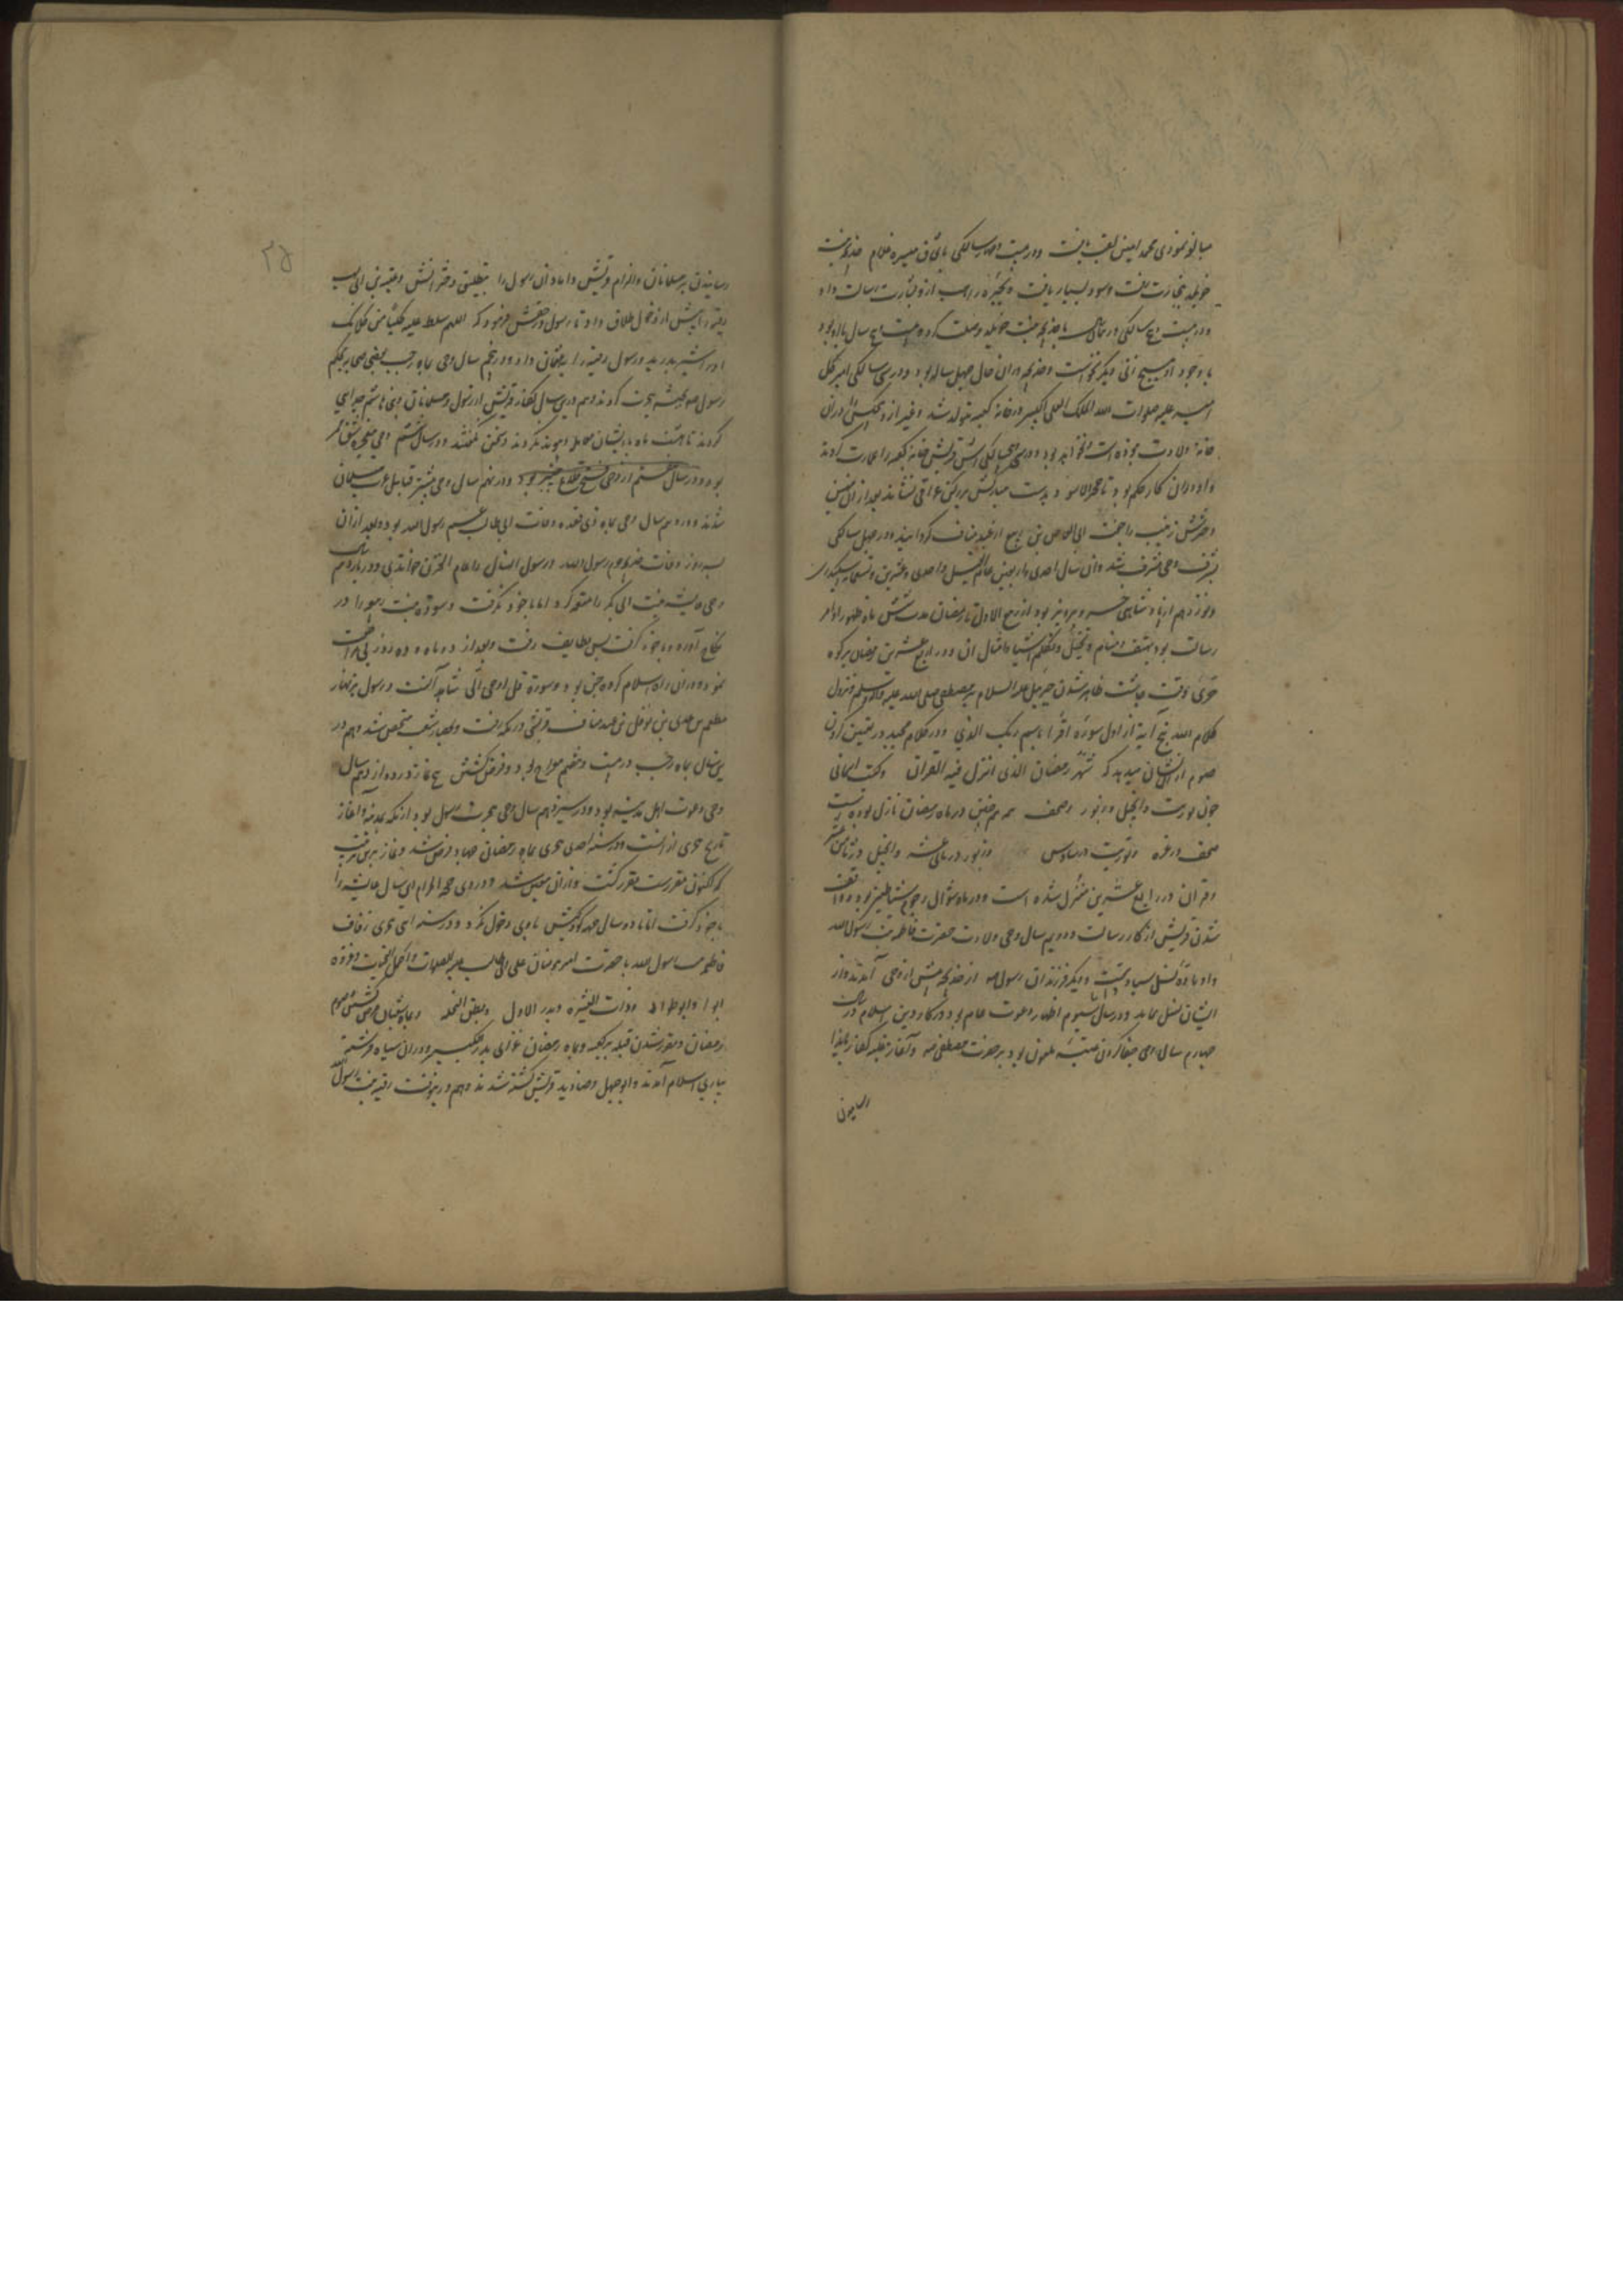 مبالغه نمودی محمد امین لقب یافت و در بیست و چهار سالگی باتفاق میسره غلام خدیجه بنت
خویلد بتجارت رفت و سود بسیار یافت و بحیره راهب ازو بشارت رسالت داد
و در بیست و پنج سالگی خدیجه بنت خویلد وصلت کرده بیست و پنج سال با او بود
با وجود او هیچ زنی دیگر نخواست و خدیجه در آن حال چهل ساله بود و در سی سالگی امیر کل
امیر علیه صلوات الله الملک العلی الکبیر در خانه کعبه متولد شد و غیر از و هیچکس را در آن
خانه ولادت نبوده است و نخواهد بود و در سی و پنج سالگی قریش خانه کعبه را عمارت کردند
و او در آن کار حکم بود تا حجر الاسود بدست مبارکش بر رکن عراقی نشاند بعد از آن
دخترش زینب را بجفت ابی العاص بن ربیع از عبد مناف گردانید و در چهل سالگی
بشرف وحی مشرف شد و آن سال احدی و اربعین عام الفیل و احدی و عشرین و تسعمائه اسکندری
و نوزدهم از پادشاهی خسرو پرویز بود از ربیع الاول تا رمضان مدت شش ماه ظهور اوامر
رسالت بود بهتف و منام و تخیل و تکلم اشیا و امثال آن و در رابع عشرین رمضان بر کوه
حری وقت چاشت ظاهر شدن جبرئیل علیه السلام بر مصطفی صلی الله علیه و آله و سلم و نزول
کلام الله پنج آیة از اول سورة اقرأ باسم ربک الذی و در کلام مجید در تعیین کردن
صوم از آن نشان میدهد که شهر رمضان الذی انزل فیه القرآن و کتب آسمانی
چون توریت و انجیل و زبور و صحف هم در ماه رمضان نازل بوده است
صحف در غره و توریت در سادس و زبور در ثانی عشر و انجیل در ثامن عشر
و قرآن در رابع عشرین منزل شده است و در ماه شوال رجوم شیاطین بود و واقف
شدن قریش از کار رسالت و دویم سال وحی ولادت حضرت فاطمه بنت رسول الله
و او ماده نسل سیادتست و دیگر فرزندان رسول از خدیجه پیش از وحی آمدند و از
ایشان نسل نماند و در سال سیوم اظهار دعوت عام بود و در کار دین اسلام و در
چهارم سال وحی جفا کردن عتبه ملعون بود بر حضرت مصطفی و آغاز غلبه کفار بایذا
رسانیدن
۲۵
رسانیدن بر مسلمانان و الزام قریش دامادان رسول را بتطلیق دخترانش و عتبه بن ابی لهب
رقیه را پیش از دخول طلاق داد تا رسول در حقش فرمود که اللهم سلط علیه کلبا من کلابک
او را شیر بدرید و رسول رقیه را بعثمان داد و در پنجم سال وحی بماه رجب بعضی صحابه بحکم
رسول بحبشه هجرت کردند و هم درین سال کفار قریش از رسول و مسلمانان و بنی هاشم جدایی
کردند تا هشت ماه با ایشان معامله و پیوند نکردند و سخن نگفتند و در سال ششم وحی معجزه شق قمر
بود و در سال هشتم از وحی و در نهم سال وحی بیشتر قبایل عرب مسلمان
شدند و در دهم سال وحی بماه ذی قعده وفات ابی طالب عم رسول الله بود و بعد از آن
بسه روز وفات خدیجه حرم رسول الله و رسول آن سال را عام الحزن خواندی و در یازدهم سال
وحی عایشه بنت ابی بکر را عقد کرد اما با خود نگرفت و سوده بنت زمعه را در
نکاح آورد و با خود گرفت پس بطایف رفت و بعد از دو ماه و ده روز مراجعت
نمود و در آن راه اسلام کردن جن بود و سورة قل اوحی الی شاهد آنست و رسول بزنهار
مطعم بن عدی بن نوفل بن عبد مناف قریشی در مکه رفت و هم در
این سال بماه رجب در بیست و هفتم معراج بود و فرض گشتن پنج نماز و در دوازدهم سال
وحی دعوت اهل مدینه بود و در سیزدهم سال وحی هجرت رسول بود از مکه بمدینه و آغاز
تاریخ هجری از آنست و در سنه احدی هجری بماه رمضان جهاد فرض شد و نماز برین ترتیب
که اکنون مقررست مقرر گشت و اذان معین شد و در ذی حجه الحرام این سال عایشه را
با خود گرفت اما تا دو سال جهت کودکیش با وی دخول نکرد و در سنه اثنی هجری زفاف
فاطمه بنت رسول الله با حضرت امیر مومنان علی ابی طالب علیه الصلوات و اکمل التحیات و غزوه
ابوا و ابواط و ذات العشیره و بدر الاول و بطن النخله و بماه شعبان فرض گشتن صوم
رمضان و مقرر شدن قبله بر کعبه و بماه رمضان غزای بدر الکبیر و در آن سپاه فرشته
بیاری اسلام آمدند و ابو جهل و صنادید قریش کشته شدند و هم درینوقت رقیه بنت رسول الله